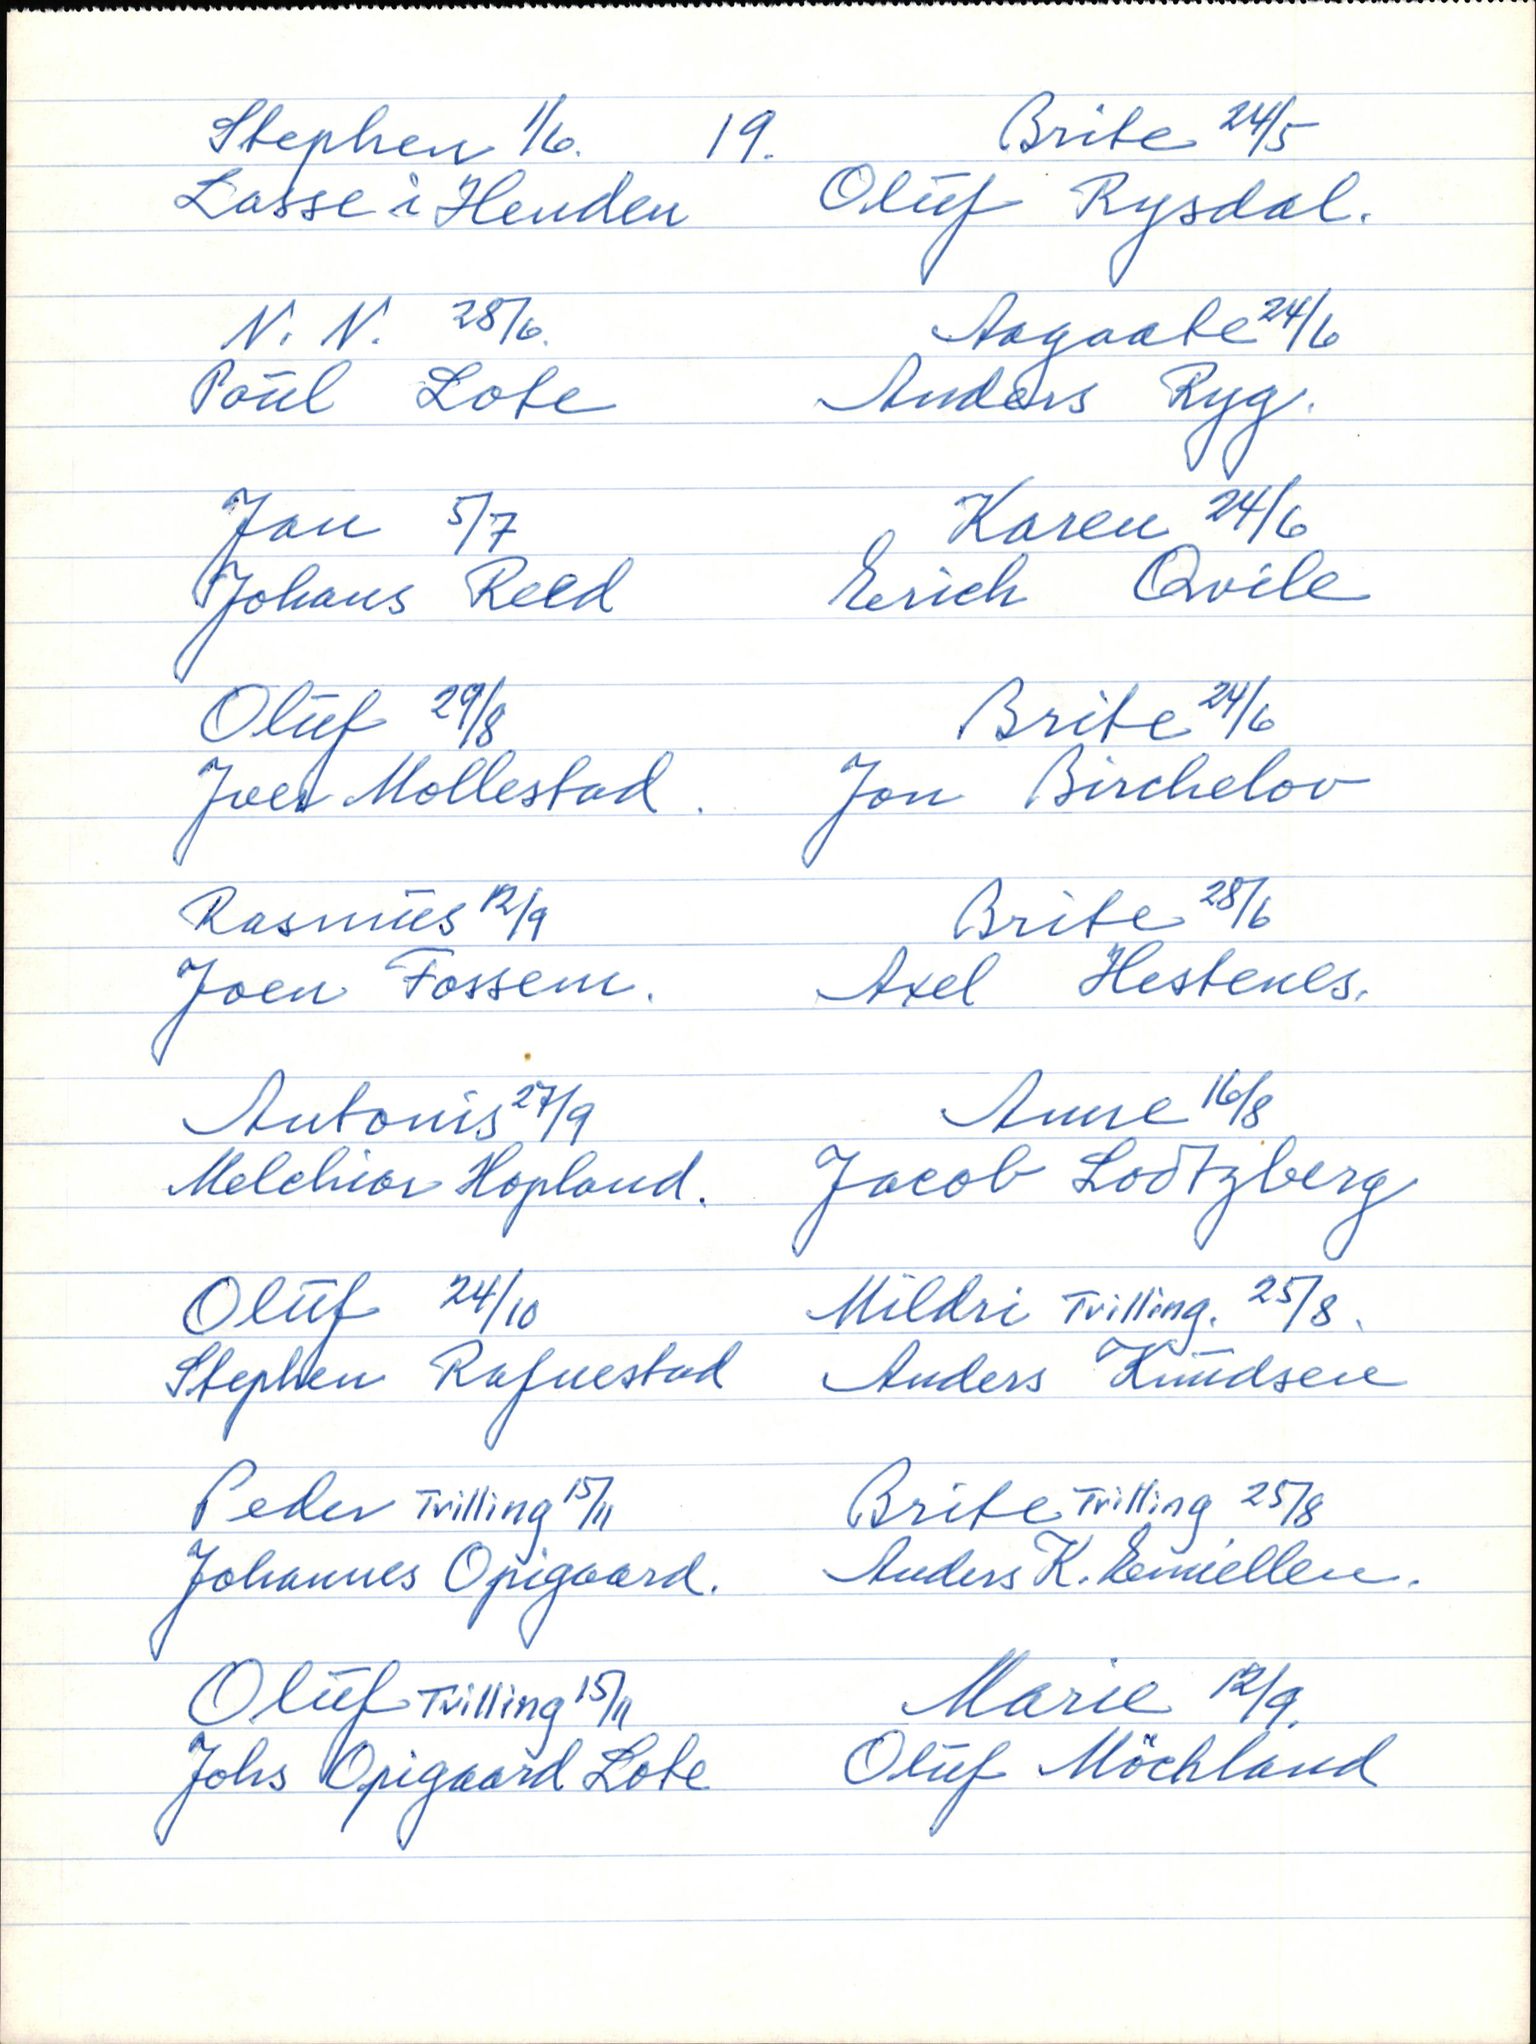 19.
Stephen 1/6.
Lasse i Henden
N. N. 28/6.
Poül Lote
Jan 5/7
Johans Reed
Olüf 29/8
Jver Mollestad.
Rasmüs 12/9
Joen Fossem.
Antonis 27/9
Melchior Hopland.
Olüf 24/10
Stephen Rafnestad
Peder Tvilling 15/11
Johannes Opigaard.
Olüf Tvilling 15/11
Johs Opigaard Lote
Brite 24/5
Olüf Rysdal.
Aagaate 24/6
Anders Ryg.
Karen 24/6
Erich Qvile
Brite 24/6
Jon Birchelov
Brite 28/6
Axel Hestenes.
Anne 16/8
Jacob Lodtzberg
Mildri Tvilling. 25/8.
Anders Knüdsen
Brite Tvilling 25/8
Anders K.
Marie 12/9.
Olüf Möchland